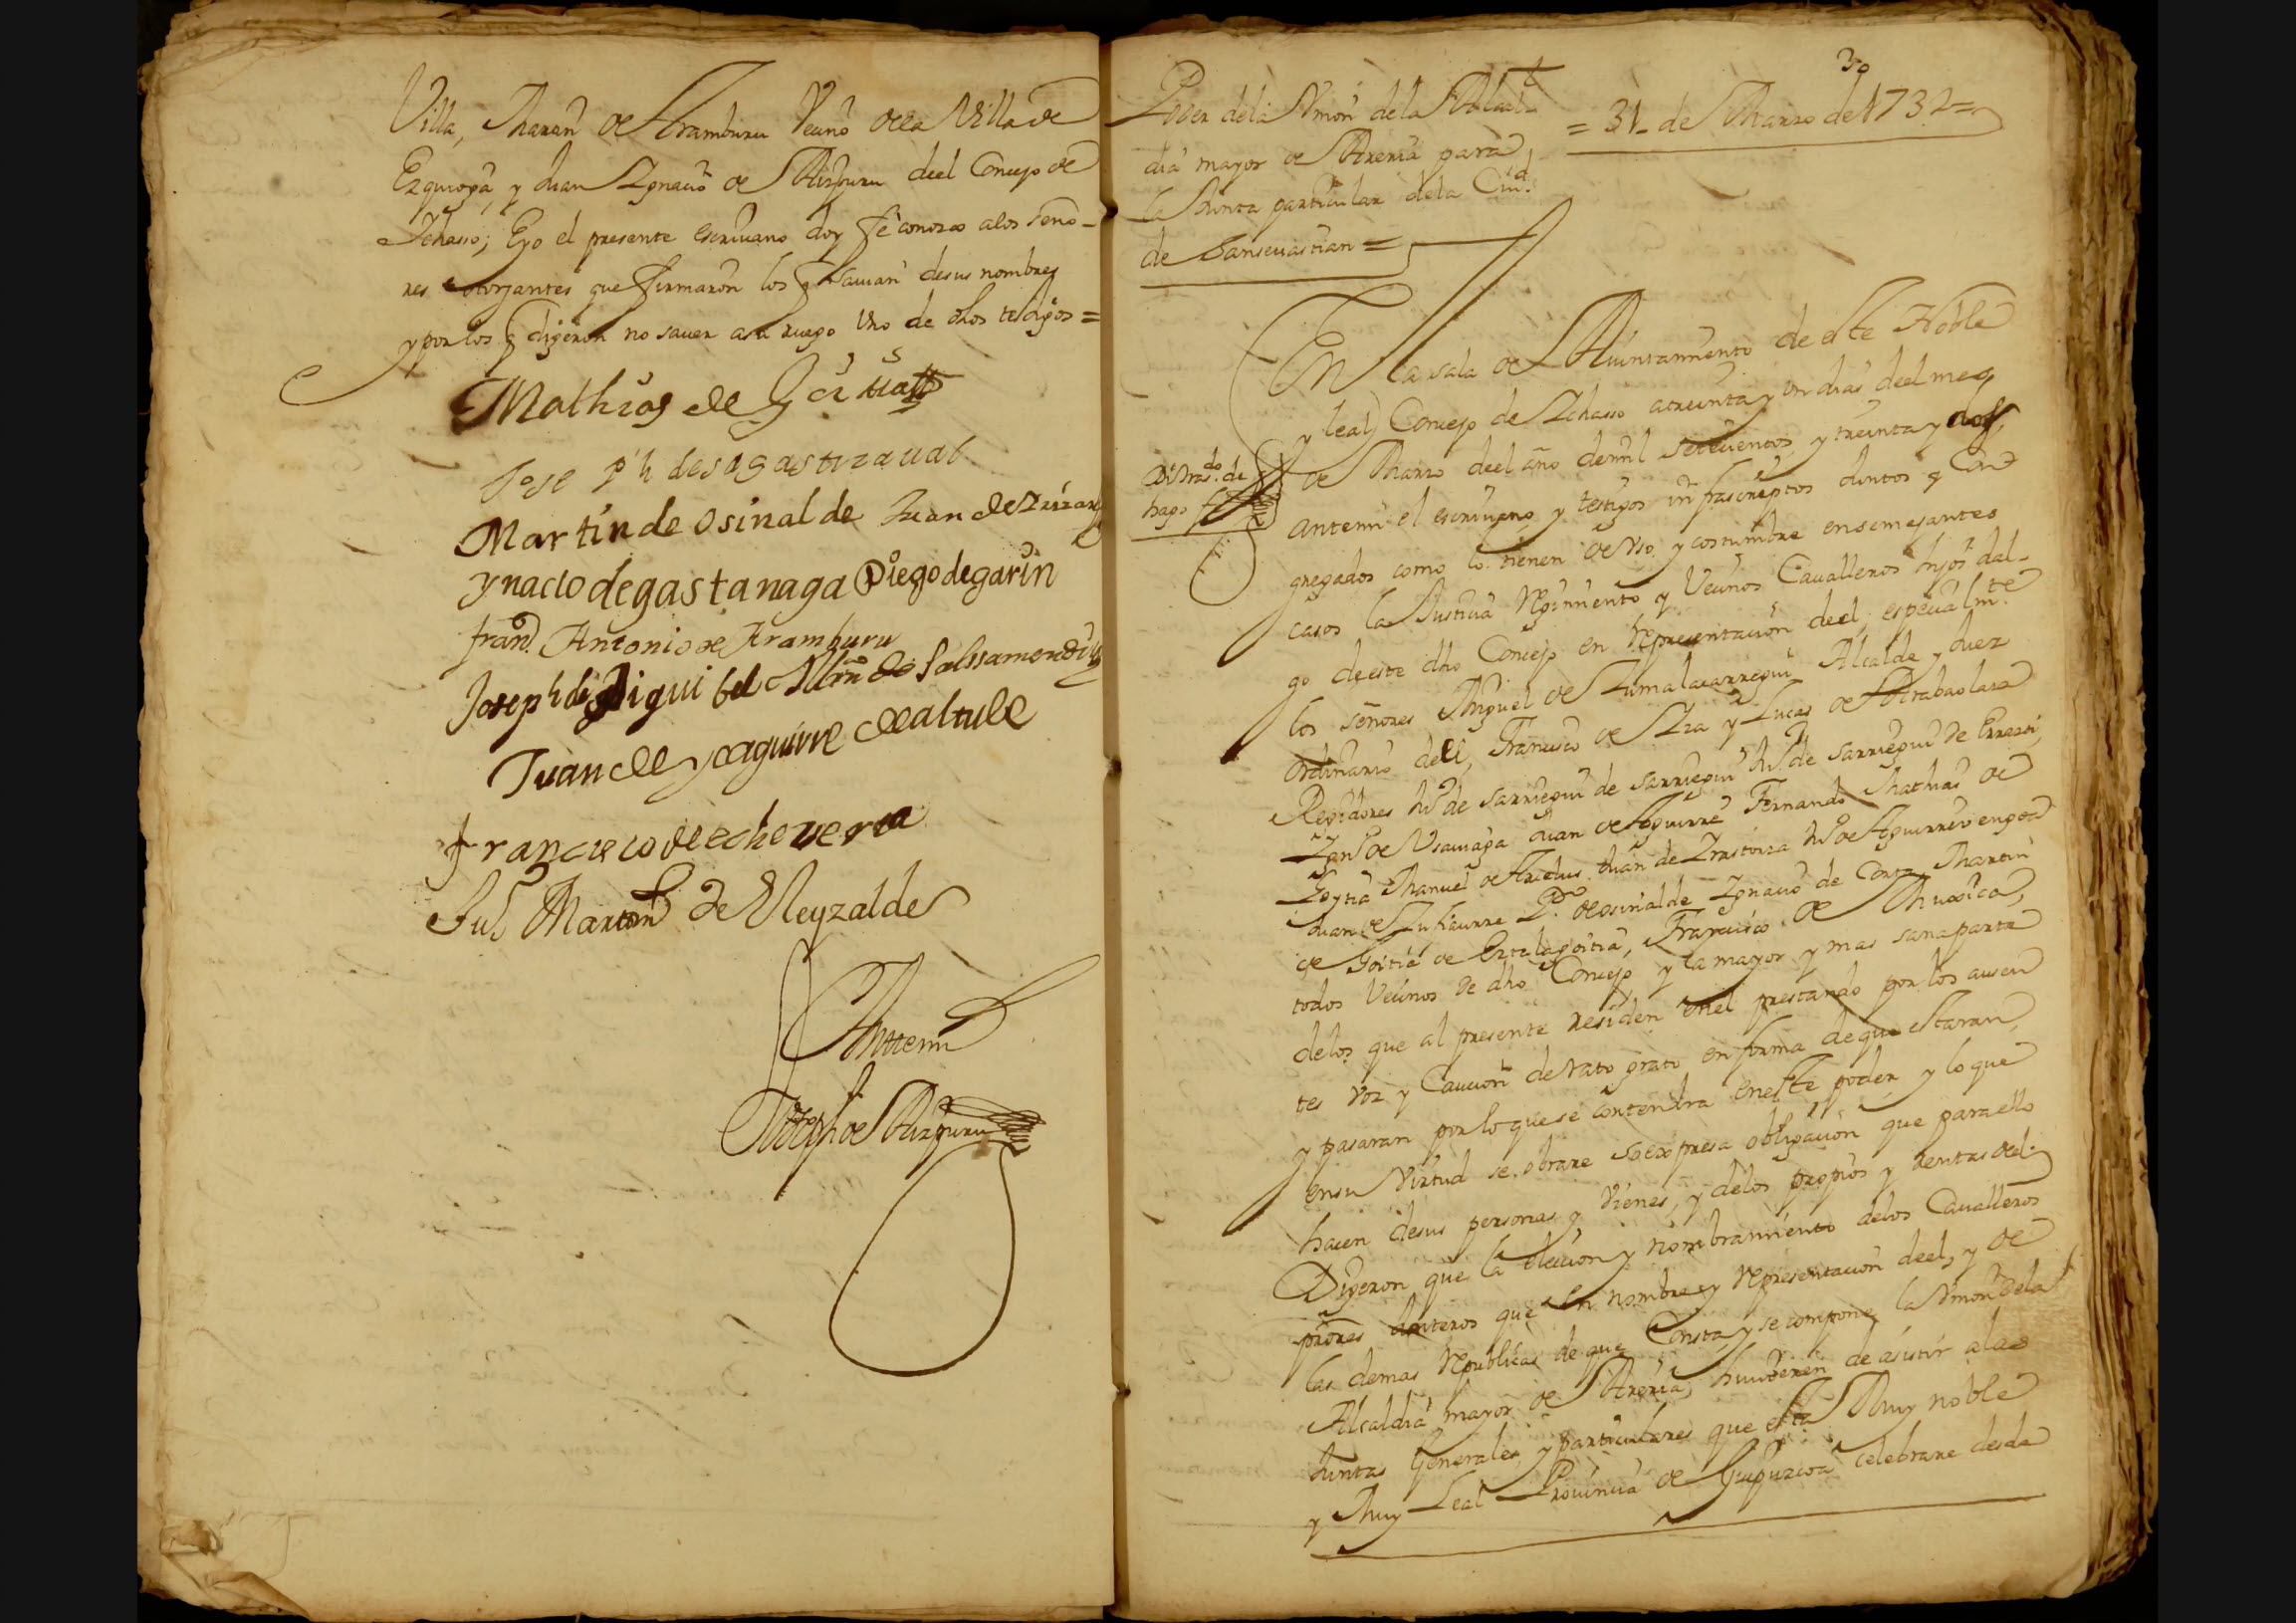 Villa, Martin de Aramburu Vecino dela Villa de
Ezquioga, y Juan Ygnacio de Aizpuru del Concejo de
Ychasso; Eyo el presente escrivano doy feè conozco alos Seño-
res otorgantes que firmaron los q savian desus nombres
y por los q dijeron no saver asu ruego Uno de dhos testigos =
Mathias de
Joseph de sagastizaval
Martin de Osinalde Juan de
Ynacio de gastanaga Diego de garin
fran.co Antonio de Aramburu
Joseph de
Juan de yzaguirre de altube
Francisco de echeverra
Martin de Eleyzalde
Anttemi
Joseph de Aizpuru
30
Poder dela Union dela Alcal-
dia mayor de Areria para
la Junta particular dela Ciud.
de Sansevastian =
= 31 de Marzo de 1732 =
En la sala de Aiuntamiento de este Noble
y leal Concejo de Ychasso atreinta y un dias del mes
de Marzo del año demil setecientos y treinta y dos,
antemi el escrivano y testigos infrascriptos Juntos y Con
gregados como lo tienen de Uso y costumbre ensemejantes
casos la Justicia Regimiento y Vecinos Cavalleros hijos dal-
go deeste dho Concejo en representacion deel, especialm.te
los señores Miguel de Zumalacarregui Alcalde y Juez
Ordinario deel, Francisco de Yza y Lucas de Arabaolaza
Regidores de Sarriegui de Sarriegui de Sarriegui de
de Usaviaga Juan de Aguirre Fernando Mathias de
Goytia Manuel de Juan de Yrastorza de Aguirre
Juan de P.o de osinalde Ygnacio de Martin
de Goitia de Francisco de Muxica,
todos Vecinos de dho Concejo y la mayor y mas sana parte
delos que al presente residen enel prestando por los ausen
tes voz y Caucion de rato grato en forma deque estaran,
y pasaran por lo quese contendra eneste poder y lo que
ensu Virtud se obrare so expresa obligacion que para ello
hacen desus personas y vienes, y delos propios y rentas deel.
Digeron que la eleccion y nombramiento delos Cavalleros
prores Junteros que en nombre y representacion deel, y de
las demas republicas de que Consta y se compone la Union dela
Alcaldia mayor de Areria, huvieren de asistir alas
Juntas Generales, y particulares que esta Muy noble
y Muy Leal Provincia de Guipuzcoa celebrare desde